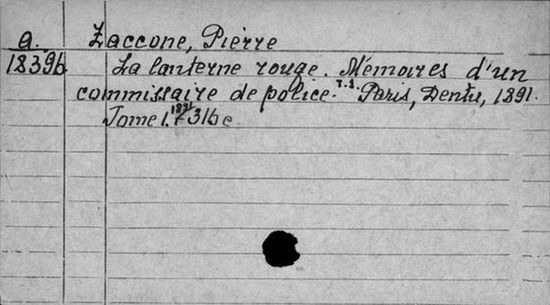 a. Zaccone, Pierre
1839b La lanterne rouge. Mémoires d'un
commissaire de police. T.1. Paris, Dentu, 1891.
1891
Tome 1. 316 c